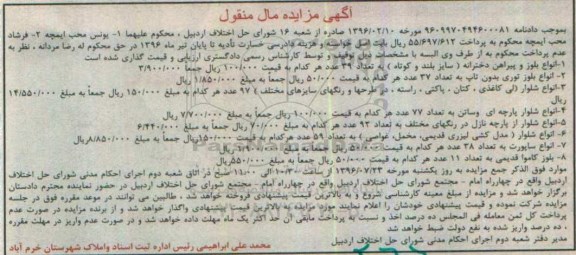 آگهی مزایده مال منقول
بموجب دادنامه ۹۶۰۹۹۷۰۴۹۴۶۰۰۰۸۱ مورخه ۱۳۹۶/۰۲/۱۰ صادره از شعبه ۱۶ شورای حل اختلاف اردبیل ، محکوم علیهما ۱- یونس محب ایمچه ۲- فرشاد
محب ایمچه محکوم به پرداخت ۵۵/۶۹۷/۶۱۲ ریال بابت اصل خواسته و هزینه دادرسی خسارت تأدیه تا پایان تیر ماه ۱۳۹۶ در حق محکوم له رضا مردانه ، نظر به
عدم پرداخت محکوم به از طرف وی البسه با مشخصات ذیل توقیف و توسط کارشناس رسمی دادگستری ارزیابی و قیمت گذاری شده است
۱-انواع بلوز و پیراهن دخترانه ( سایز بلند و کوتاه ) به تعداد ۳۹ عدد هر کدام به قیمت ۱۰۰/۰۰۰ ریال جمعاً ۳/۹۰۰/۰۰۰
۲-انواع بلوز توری بدون تاپ به تعداد ۳۷ عدد هر کدام به قیمت ۵۰/۰۰۰ ریال به مبلغ ۱/۸۵۰/۰۰۰ ریال
۳-انواع شلوار (لی کاغذی ، کتان ، پاکتی ، راسته ، در طرحها و رنگهای سایزهای مختلف ) ۹۷ عدد هر کدام به مبلغ ۱۵۰/۰۰۰ ریال جمعاً به مبلغ ۱۴/۵۵۰/۰۰۰
ریال
۴-انواع شلوار پارچه ای وساتن به تعداد ۷۷ عدد هر کدام به قیمت ۱۰۰/۰۰۰ ریال جمعاً به مبلغ ۷/۷۰۰/۰۰۰ ریال
۵-انواع شلوار از پارچه نازل در رنگهای مختلف به تعداد ۹۲ عدد هر کدام به مبلغ ۷۰/۰۰۰ ریال جمعاً به مبلغ ۶/۴۴۰/۰۰۰
۶-انواع شلوار ( مدل کشی لیوری قدیمی، مخمل، غواصی ) به تعداد ۵۹ عدد هر کدام به قیمت ۱۵۰/۰۰۰ ریال جمعاً به مبلغ ۸/۸۵۰/۰۰۰ ریال
۷-انواع ساپورت به تعداد ۳۸ عدد هر کدام به قیمت
۸- بلوز کاموا قدیمی به تعداد ۱۱ عدد هر کدام به قیمت ۵۰/۰۰۰ ریال جمعاً به مبلغ ۵۵۰/۰۰۰ ریال
موارد فوق الذکر جمع مزایده به روز یکشنبه مورخه ۱۳۹۶/۰۷/۲۳ از ساعت ۱۰/۳۰ الی ۱۱/۰۰ صبح در اتاق شعبه دوم اجرای احکام مدنی شورای حل اختلاف
اردبیل واقع در چهارراه امام - مجتمع شورای حل اختلاف اردبیل واقع در چهارراه امام - مجتمع شورای حل اختلاف اردبیل در حضور نماینده محترم دادستان
برگزار خواهد شد و مزایده از مبلغ معینه کارشناسی شروع و به بالاترین قیمت پیشنهادی فروخته خواهد شد . طالبین می توانند در موعد مقرره فوق در جلسه
مزایده شرکت نموده و قیمت پیشنهادی خودشان را اعلام نمایند مورد مزایده به بالاترین قیمت پیشنهادی واگذار خواهد شد و از برنده مزایده در صورت عدم
پرداخت کل ثمن معامله فی المجلس ده درصد اخذ و نسبت به پرداخت مابقی آن حد اکثر یک ماه مهلت داده خواهد شد و در صورت عدم واریز در مهلت مقرره
، ده درصد واریز شده به نفع دولت ضبط خواهد شد
مدیر دفتر شعبه دوم اجرای احکام مدنی شورای حل اختلاف اردبیل
محمد علی ابراهیمی رئیس اداره ثبت اسناد واملاک شهرستان خرم آباد